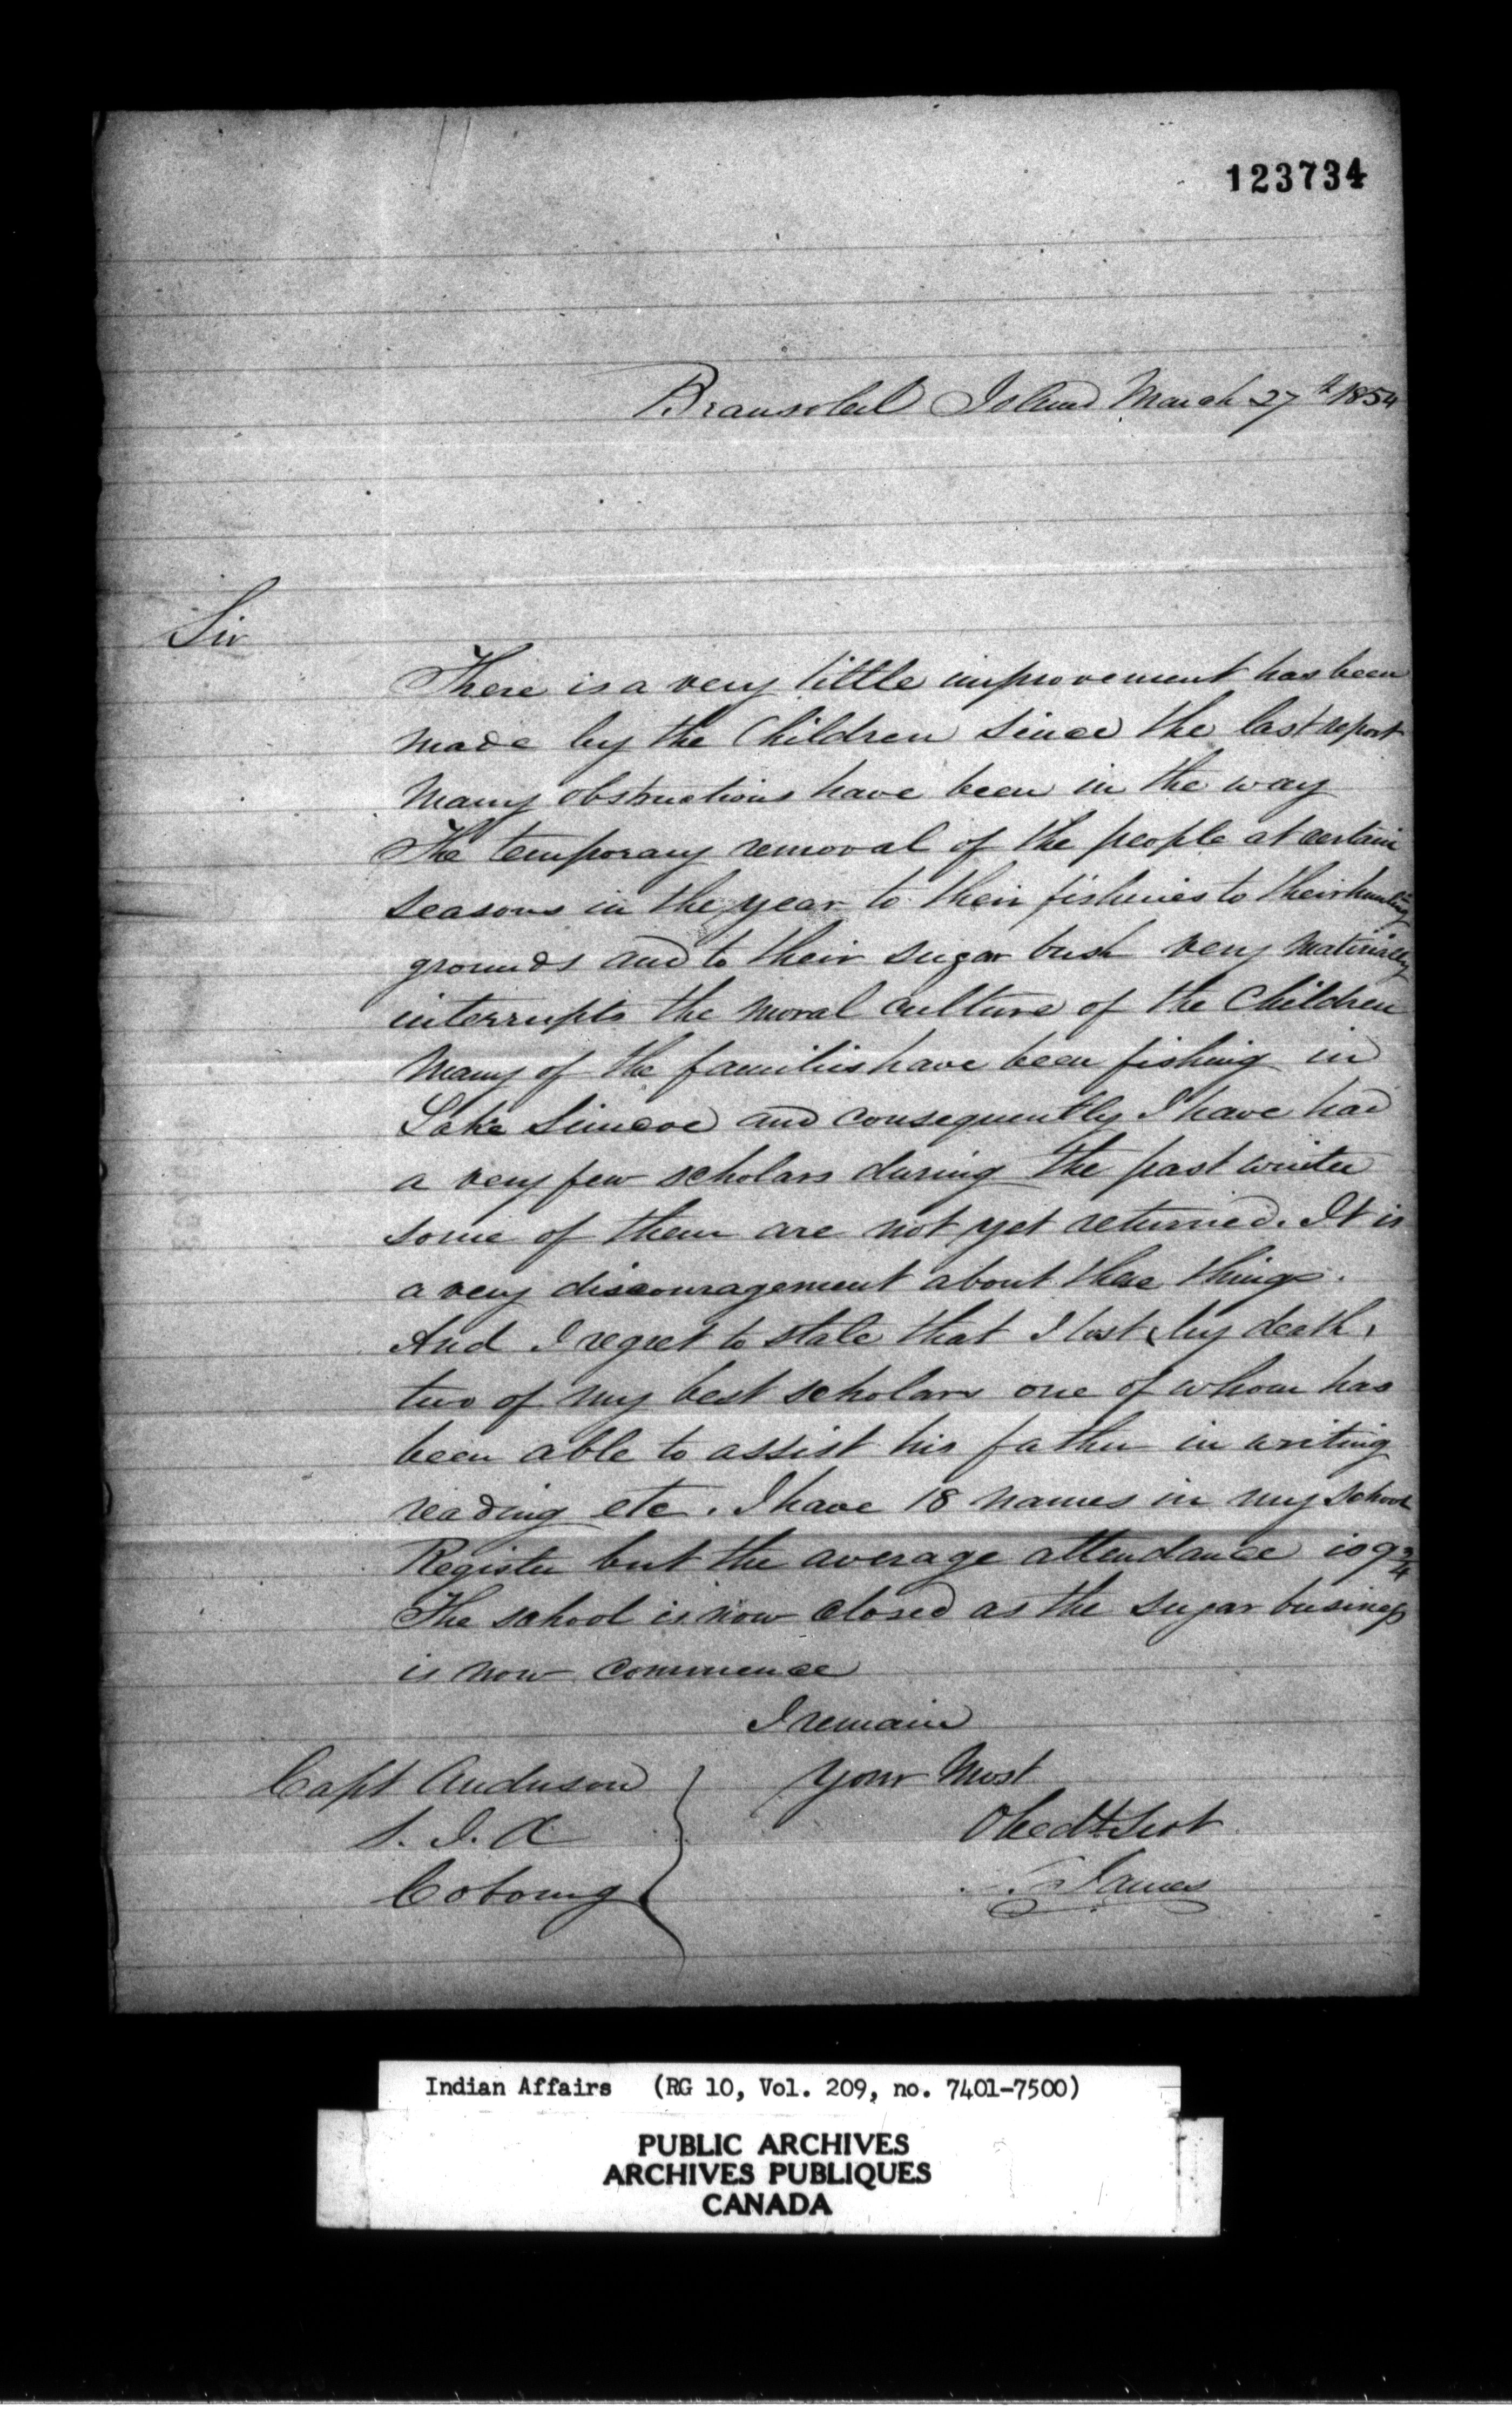 123734
Beausoleil Island March 27th 1854
Sir
There is a very little improvement has been
made by the Children since the last report
Many obstructions have been in the way
The temporary removal of the people at certain
seasons in the year to their fisheries to their hunting
grounds and to their sugar bush very materially
interrupts the moral culture of the Children
Many of the families have been fishing in
Lake Simcoe and consequently I have had
a very few scholars during the past winter
some of them are not yet returned. It is
a very discouragement about these things.
And I regret to state that I lost, by death,
two of my best scholars one of whom has
been able to assist his father in writing
reading etc. I have 18 names in my school
Register but the average attendance is 9 3/4
The school is now closed as the sugar business
is now commence
I remain
Your Most
Obedt Servt
James
Capt Anderson
S. I. A
Cobourg
Indian Affairs (RG 10, Vol. 209, no. 7401-7500)
PUBLIC ARCHIVES
ARCHIVES PUBLIQUES
CANADA